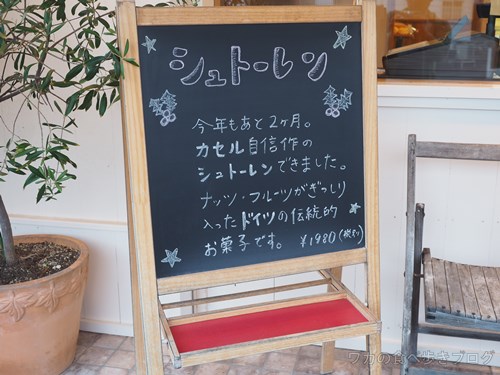 シュトーレン
今年もあと2ヶ月。
カセル自信作の
シュトーレンできました。
ナッツ・フルーツがぎっしり
入ったドイツの伝統的
お菓子です。 ¥1980(税込)
ワカの食べ歩きブログ